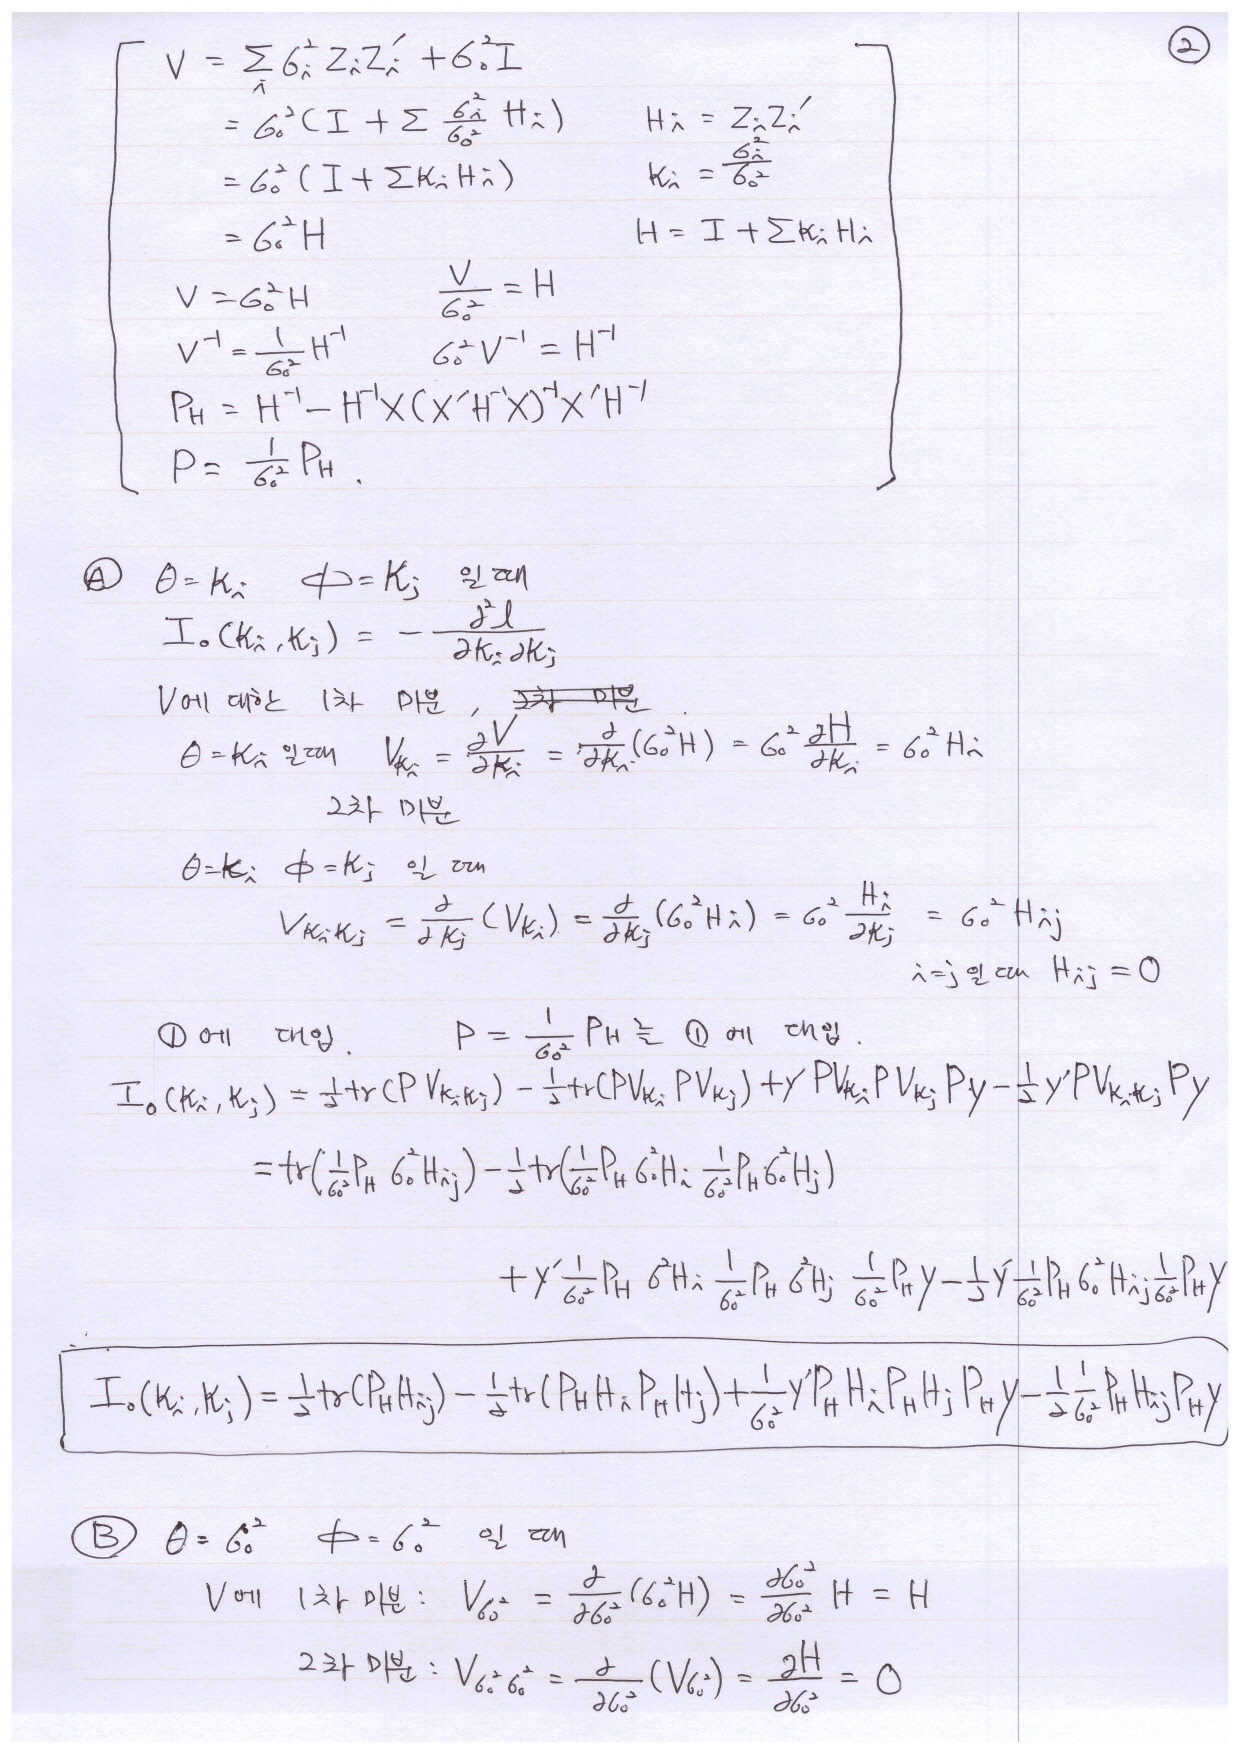 ②
V = Σ_i σ_i² Z_i Z_i′ + σ_0² I
= σ_0² ( I + Σ σ_i²/σ_0² H_i ) H_i = Z_i Z_i′
= σ_0² ( I + Σ K_i H_i ) K_i = σ_i²/σ_0²
= σ_0² H H = I + Σ K_i H_i
V = σ_0² H V/σ_0² = H
V⁻¹ = 1/σ_0² H⁻¹ σ_0² V⁻¹ = H⁻¹
P_H = H⁻¹ − H⁻¹X(X′H⁻¹X)⁻¹X′H⁻¹
P = 1/σ_0² P_H .
Ⓐ θ = K_i φ = K_j 일 때
I_o(K_i, K_j) = − ∂²l/∂K_i∂K_j
V에 대한 1차 미분, 2차 미분.
θ = K_i 일 때 V_{K_i} = ∂V/∂K_i = ∂/∂K_i (σ_0² H) = σ_0² ∂H/∂K_i = σ_0² H_i
2차 미분
θ = K_i φ = K_j 일 때
V_{K_i K_j} = ∂/∂K_j (V_{K_i}) = ∂/∂K_j (σ_0² H_i) = σ_0² H_i/∂K_j = σ_0² H_ij
i = j 일 때 H_ij = 0
①에 대입. P = 1/σ_0² P_H 를 ①에 대입.
I_o(K_i, K_j) = ½ tr(P V_{K_i K_j}) − ½ tr(P V_{K_i} P V_{K_j}) + y′ P V_{K_i} P V_{K_j} P y − ½ y′ P V_{K_i K_j} P y
= tr(1/σ_0² P_H σ_0² H_ij) − ½ tr(1/σ_0² P_H σ_0² H_i 1/σ_0² P_H σ_0² H_j)
+ y′ 1/σ_0² P_H σ² H_i 1/σ_0² P_H σ² H_j 1/σ_0² P_H y − ½ y′ 1/σ_0² P_H σ_0² H_ij 1/σ_0² P_H y
I_o(K_i, K_j) = ½ tr(P_H H_ij) − ½ tr(P_H H_i P_H H_j) + 1/σ_0² y′ P_H H_i P_H H_j P_H y − ½ 1/σ_0² P_H H_ij P_H y
Ⓑ θ = σ_0² φ = σ_0² 일 때
V에 1차 미분 : V_{σ_0²} = ∂/∂σ_0² (σ_0² H) = ∂σ_0²/∂σ_0² H = H
2차 미분 : V_{σ_0² σ_0²} = ∂/∂σ_0² (V_{σ_0²}) = ∂H/∂σ_0² = 0